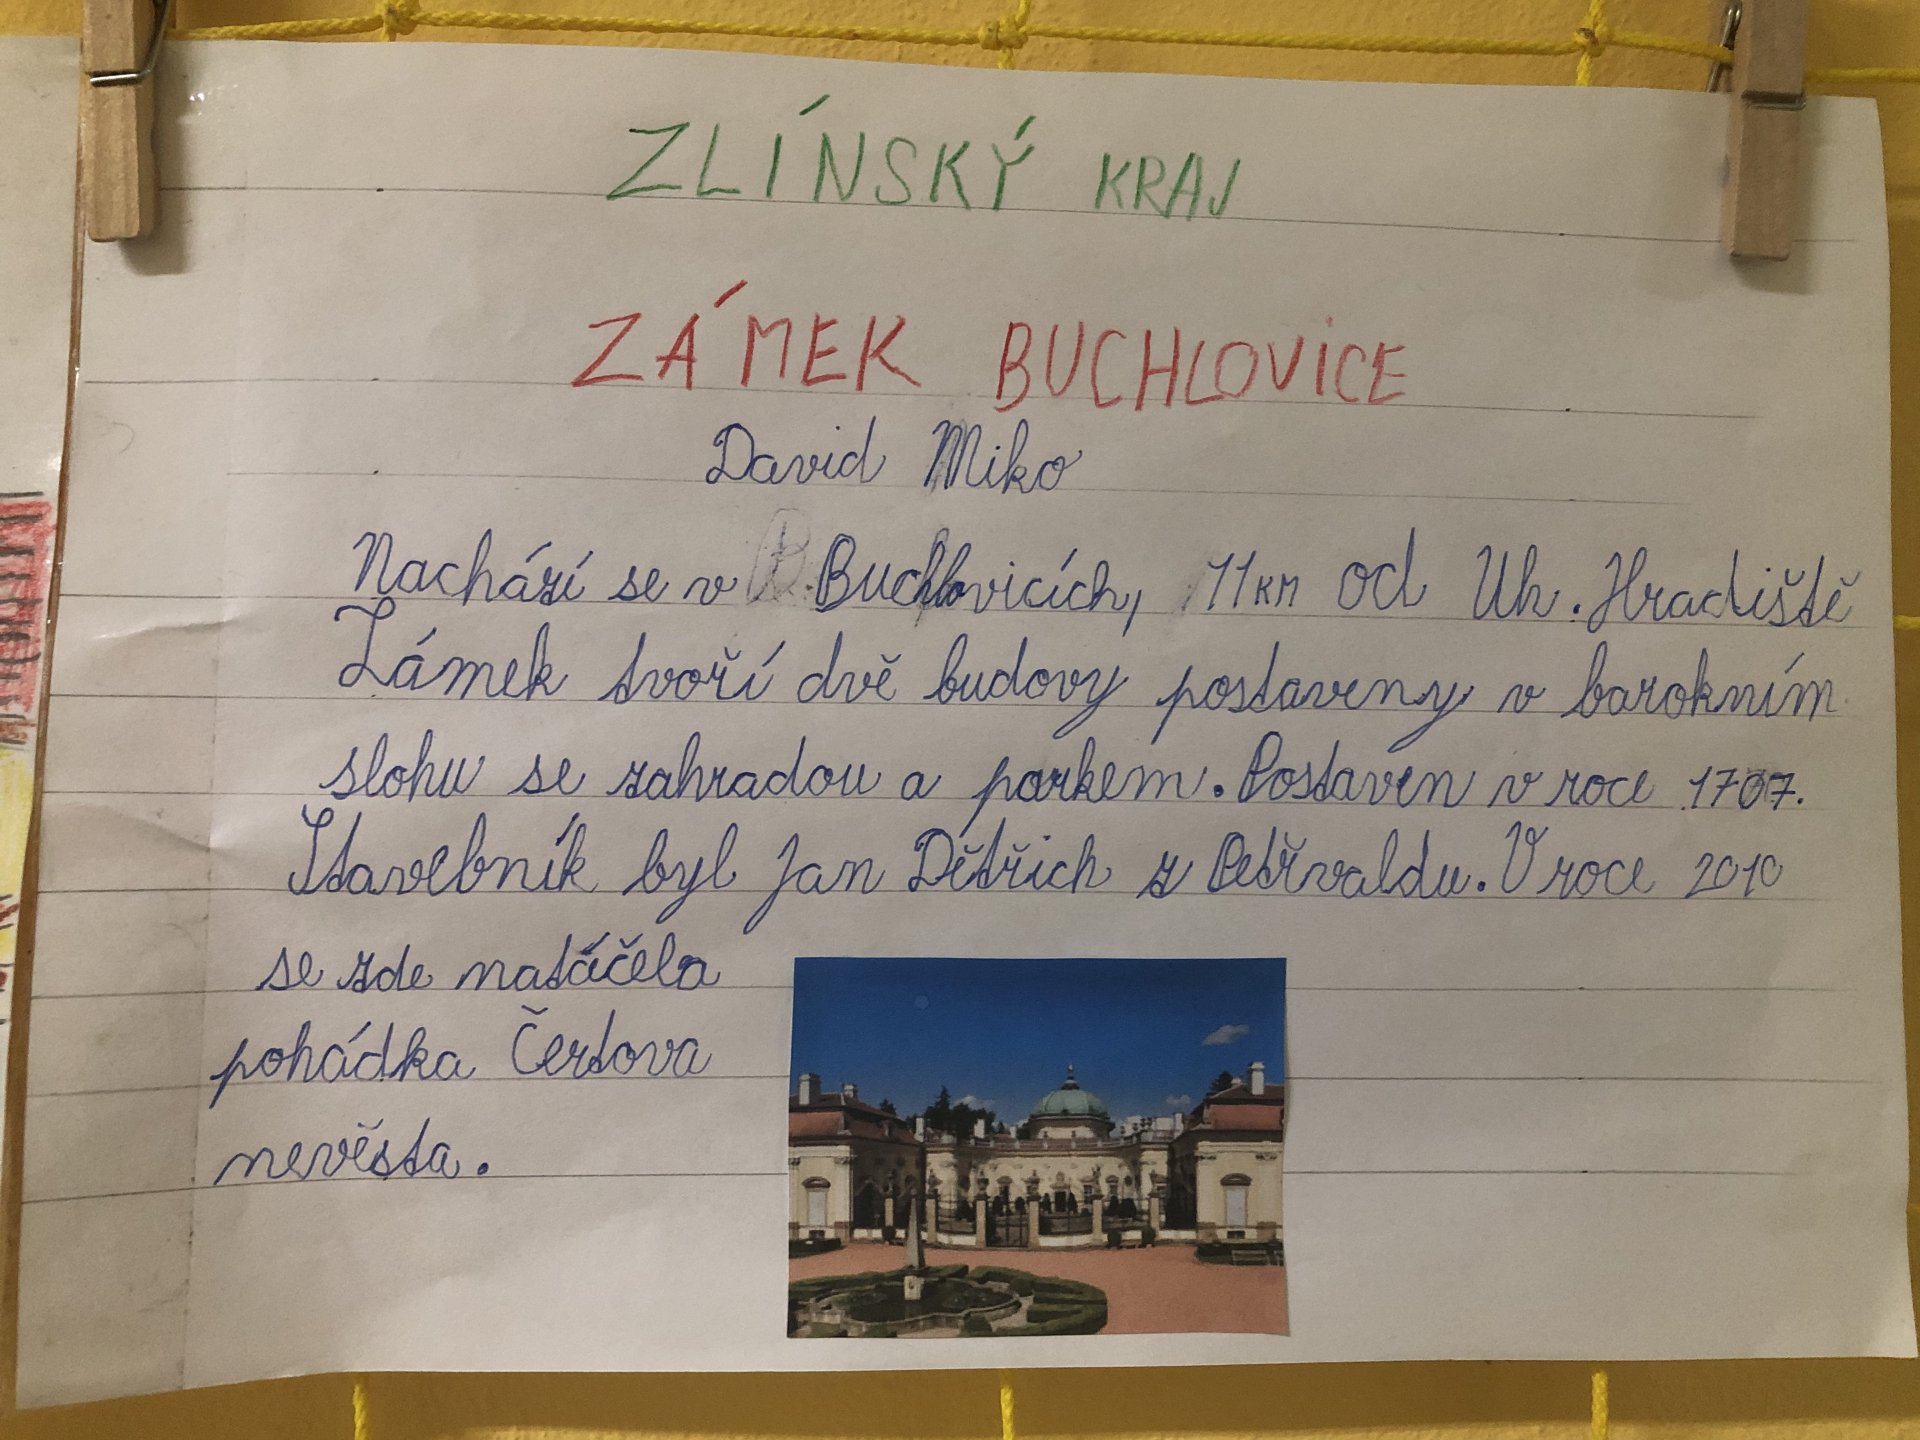 ZLÍNSKÝ KRAJ
ZÁMEK BUCHLOVICE
David Miko
Nachází se v Buchlovicích, 11 KM od Uh. Hradiště
Zámek tvoří dvě budovy postaveny v barokním
slohu se zahradou a parkem. Postaven v roce 1707.
Stavebník byl Jan Dětřich z Petřvaldu. V roce 2010
se zde natáčela
pohádka Čertova
nevěsta.